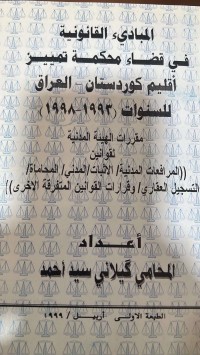 المباديء القانونية
في قضاء محكمة تمييز
أقليم كوردستان - العراق
للسنوات (١٩٩٣-١٩٩٨)
مقررات الهيئة المدنية
لقوانين
((المرافعات المدنية/ الاثبات/المدني/ المحاماة/
التسجيل العقاري/ وقرارات القوانين المتفرقة الاخرى))
أعداد
المحامي گيلاني سيد أحمد
الطبعة الاولى أربيل / ١٩٩٩